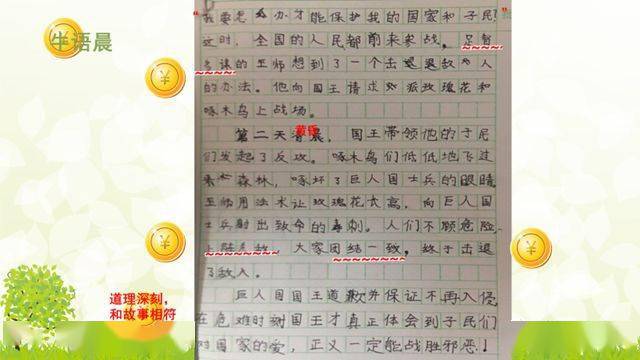 牛语晨
我要想 办才能保护我的国家和子民!
这时，全国的人民都前来参战。足智
多谋的巫师想到了一个击退敌人
的办法。他向国王请求 派玫瑰花和
啄木鸟上战场。
第二天 晨，国王带领他的子民
黄昏
们发起了反攻。啄木鸟们低低地飞过
森林，啄坏了巨人国士兵的眼睛
巫师用法术让玫瑰花长高，向巨人国
士兵射出致命的毒刺。人们不顾危险
上阵杀敌，大家团结一致，终于击退
了敌人。
巨人国国王道歉并保证不再入侵
在危难时刻国王才真正体会到子民们
对国家的爱，正义一定能战胜邪恶!
道理深刻，
和故事相符